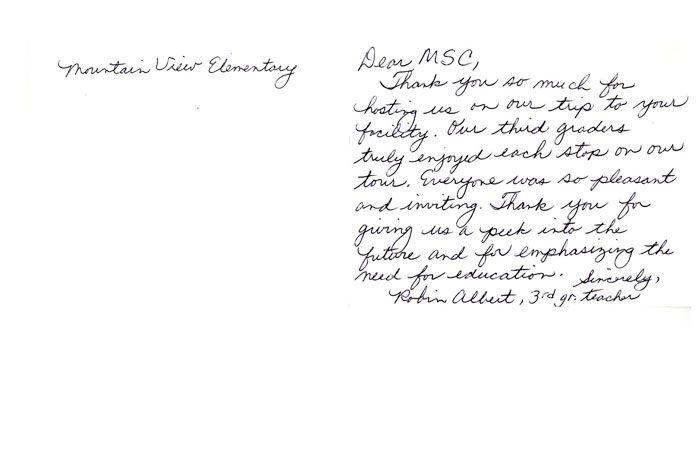 Mountain View Elementary
Dear MSC,
Thank you so much for
hosting us on our trip to your
facility. Our third graders
truly enjoyed each stop on our
tour. Everyone was so pleasant
and inviting. Thank you for
giving us a peek into the
future and for emphasizing the
need for education. Sincerely,
Robin Albert, 3rd gr. teacher